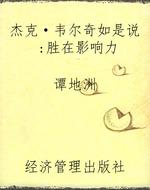 杰克·韦尔奇如是说
:胜在影响力
谭地洲
经济管理出版社